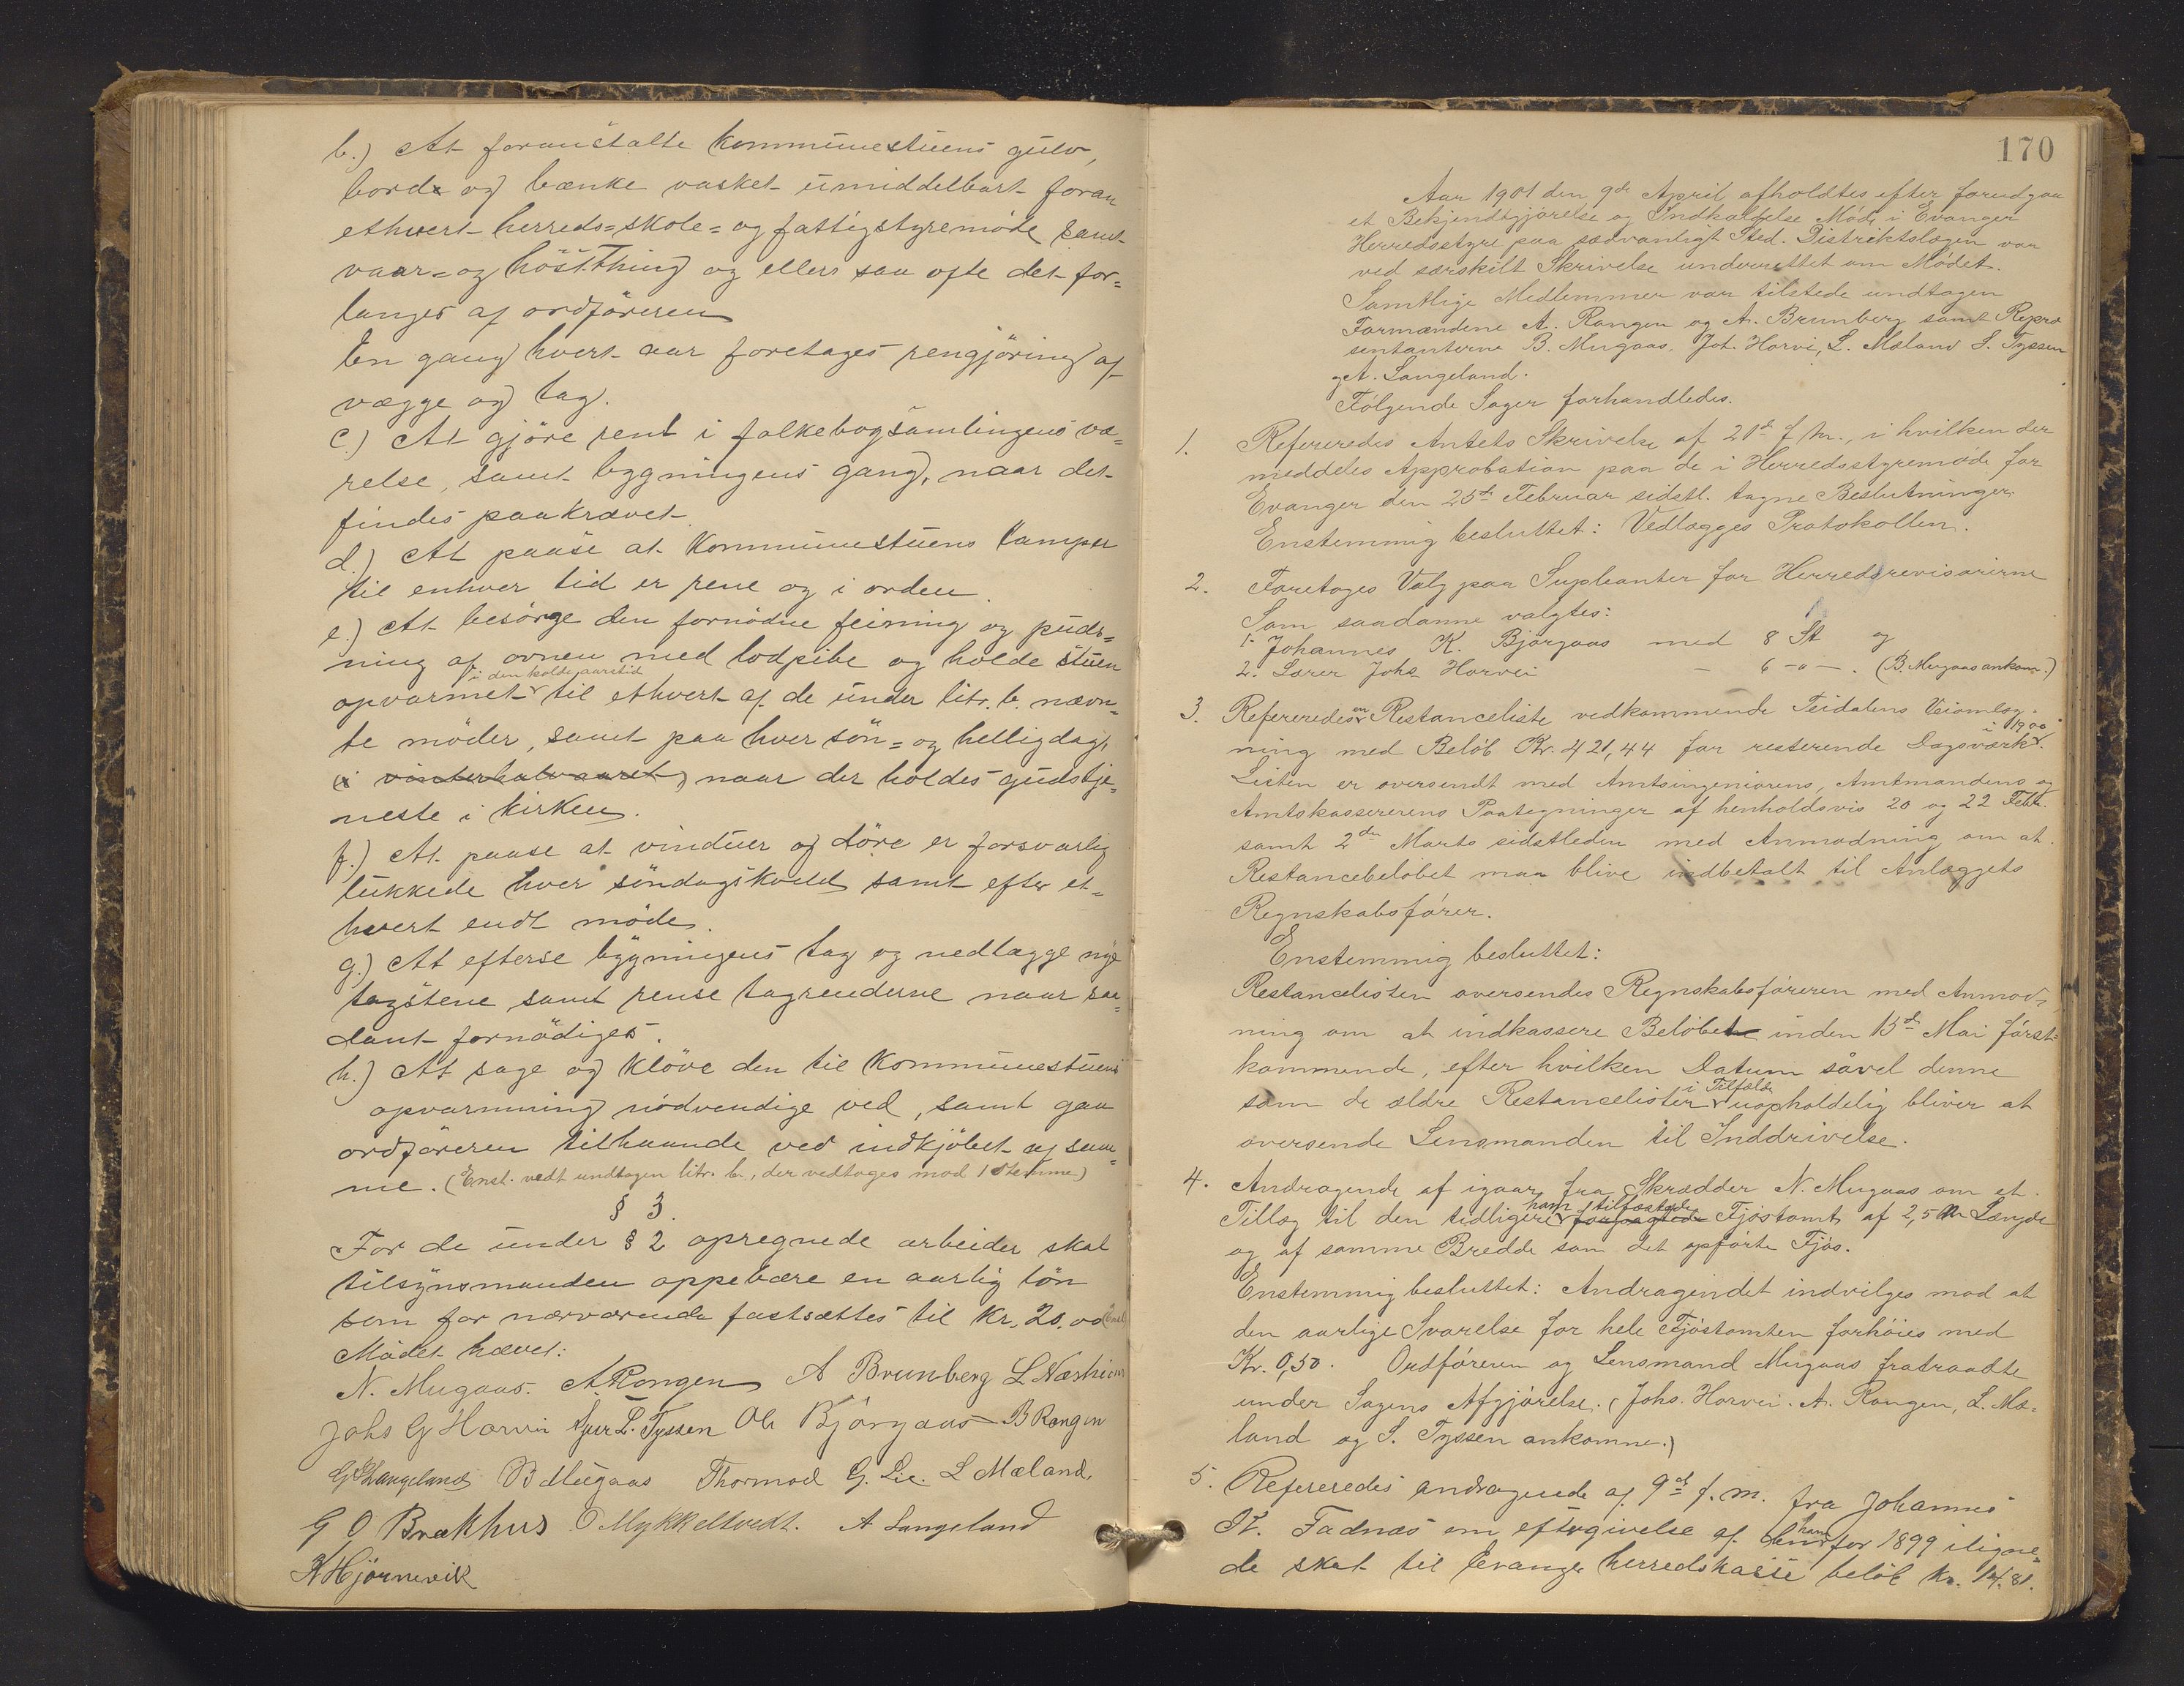 b.) At foranstalte kommunestuens gulv,
borde og bænke vasket umiddelbart foran
ethvert herreds=skole= og fattigstyremöde samt
vaar= og höstthing og ellers saa ofte det for=
langes af ordföreren
En gang hvert aar foretages rengjöring af
vægge og tag.
c.) At gjöre rent i folkebogsamlingens væ=
relse, samt bygningens gang, naar det
findes paakrævet.
d.) At paase at kommunestuens lamper
til enhver tid er rene og i orden.
e.) At besörge den fornödne feining og puds=
ning af ovnen med lodpibe og holde stuen
i den kolde aarstid
opvarmet til ethvert af de under litr. b. nævn=
te möder, samt paa hver sön= og helligdag,
(i vinterhalvaaret) naar der holdes gudstje=
neste i kirken.
f.) At paase at vinduer og döre er forsvarlig
lukkede hver söndagskveld samt efter et=
hvert endt möde.
g.) At efterse bygningens tag og nedlægge nye
tagstene samt rense tagrenderne naar saa=
dant fornödiges.
h.) At sage og klöve den til kommunestuens
opvarmning nödvendige ved, samt gaa
ordföreren tilhaande ved indkjöbet af sam=
me. (Enst. vedt undtagen litr. b., der vedtoges mod 1 stemme)
§ 3.
For de under § 2 opregnede arbeider skal
tilsynsmanden oppebære en aarlig lön
som for nærværende fastsættes til kr. 20.00 (Enst.)
Mödet hævet:
N. Mugaas. A. Rongen A Brunberg L Næsheim
Johs G Horvei Sjur L. Tyssen Ole Björgaas B Rongen
G Langeland B Mugaas Thormod G. Lie. L Mæland,
G O Brækhus O Mykkeltvedt. A Langeland
K Hjörnevik
170
Aar 1901 den 9de April afholdtes efter forudgaa
et Bekjendtgjörelse og Indkaldelse Möde i Evanger
Herredsstyre paa sædvanligt Sted. Distriktslægen var
ved særskilt Skrivelse underrettet om Mödet.
Samtlige Medlemmer var tilstede undtagen
Formændene A. Rongen og A. Brunberg samt Repræ
sentanterne B. Mugaas, Joh. Horvei, L. Mæland S. Tyssen
og A. Langeland.
Fölgende Sager forhandledes.
1. Refereredes Amtets Skrivelse af 21de f. M., i hvilken der
meddeles Approbation paa de i Herredsstyremöde for
Evanger den 25de Februar sidstl. tagne Beslutninger.
Enstemmig besluttet: Vedlægges Protokollen.
2. Foretoges Valg paa Supleanter for Herredsrevisorerne
Som saadanne valgtes:
1. Johannes K. Björgaas med 8 St og
2. Lærer Johs Horvei — 6 -"- . (B. Mugaas ankom.)
3. Refereredes en Restanceliste vedkommende Teidalens Veiomlæg=
i 1900
ning med Belöb Kr. 421,44 for resterende Dagsværk.
Listen er oversendt med Amtsingeniörens, Amtmandens og
Amtskassererens Paategninger af henholdsvis 20 og 22 Febr.
samt 2den Marts sidstleden med Anmodning om at
Restancebelöbet maa blive indbetalt til Anlæggets
Regnskabsförer.
Enstemmig besluttet:
Restancelisten oversendes Regnskabsföreren med Anmod=
ning om at indkassere Belöbet inden 15de Mai först=
kommende, efter hvilken Datum såvel denne
i Tilfælde
som de ældre Restancelister uopholdelig bliver at
oversende Lensmanden til Inddrivelse.
4. Andragende af igaar fra Skrædder N. Mugaas om et
ham tilfæstede
Tillæg til den tidligere Fjöstomt af 2,5 m Længde
og af samme Bredde som det opförte Fjös.
Enstemmig besluttet: Andragendet indvilges mod at
den aarlige Svarelse for hele Fjöstomten forhöies med
Kr. 0,50. Ordföreren og Lensmand Mugaas fratraadte
under Sagens Afgjörelse. (Johs. Horvei. A. Rongen, L. Mæ=
land og S. Tyssen ankomne.)
5. Refereredes andragende af 9de f. m. fra Johannes
K. Fadnæs om eftergivelse af den ham for 1899 iligne=
de skat til Evanger herredskasse belöb kr. 14.81.